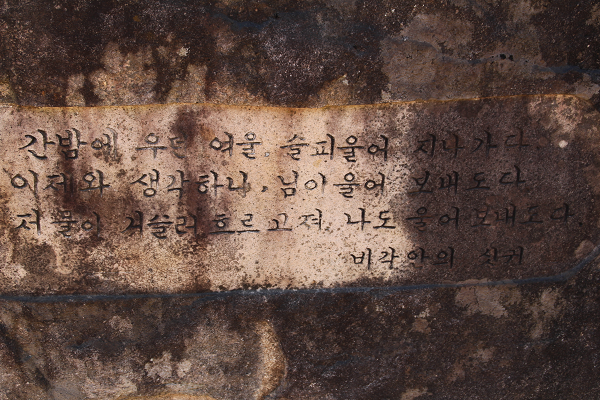 간밤에 우던 여울. 슬피울어 지나가다.
이제와 생각하니, 님이울어 보내도다
저 물이 거슬러 흐르고져 나도 울어 보내도다.
비각안의